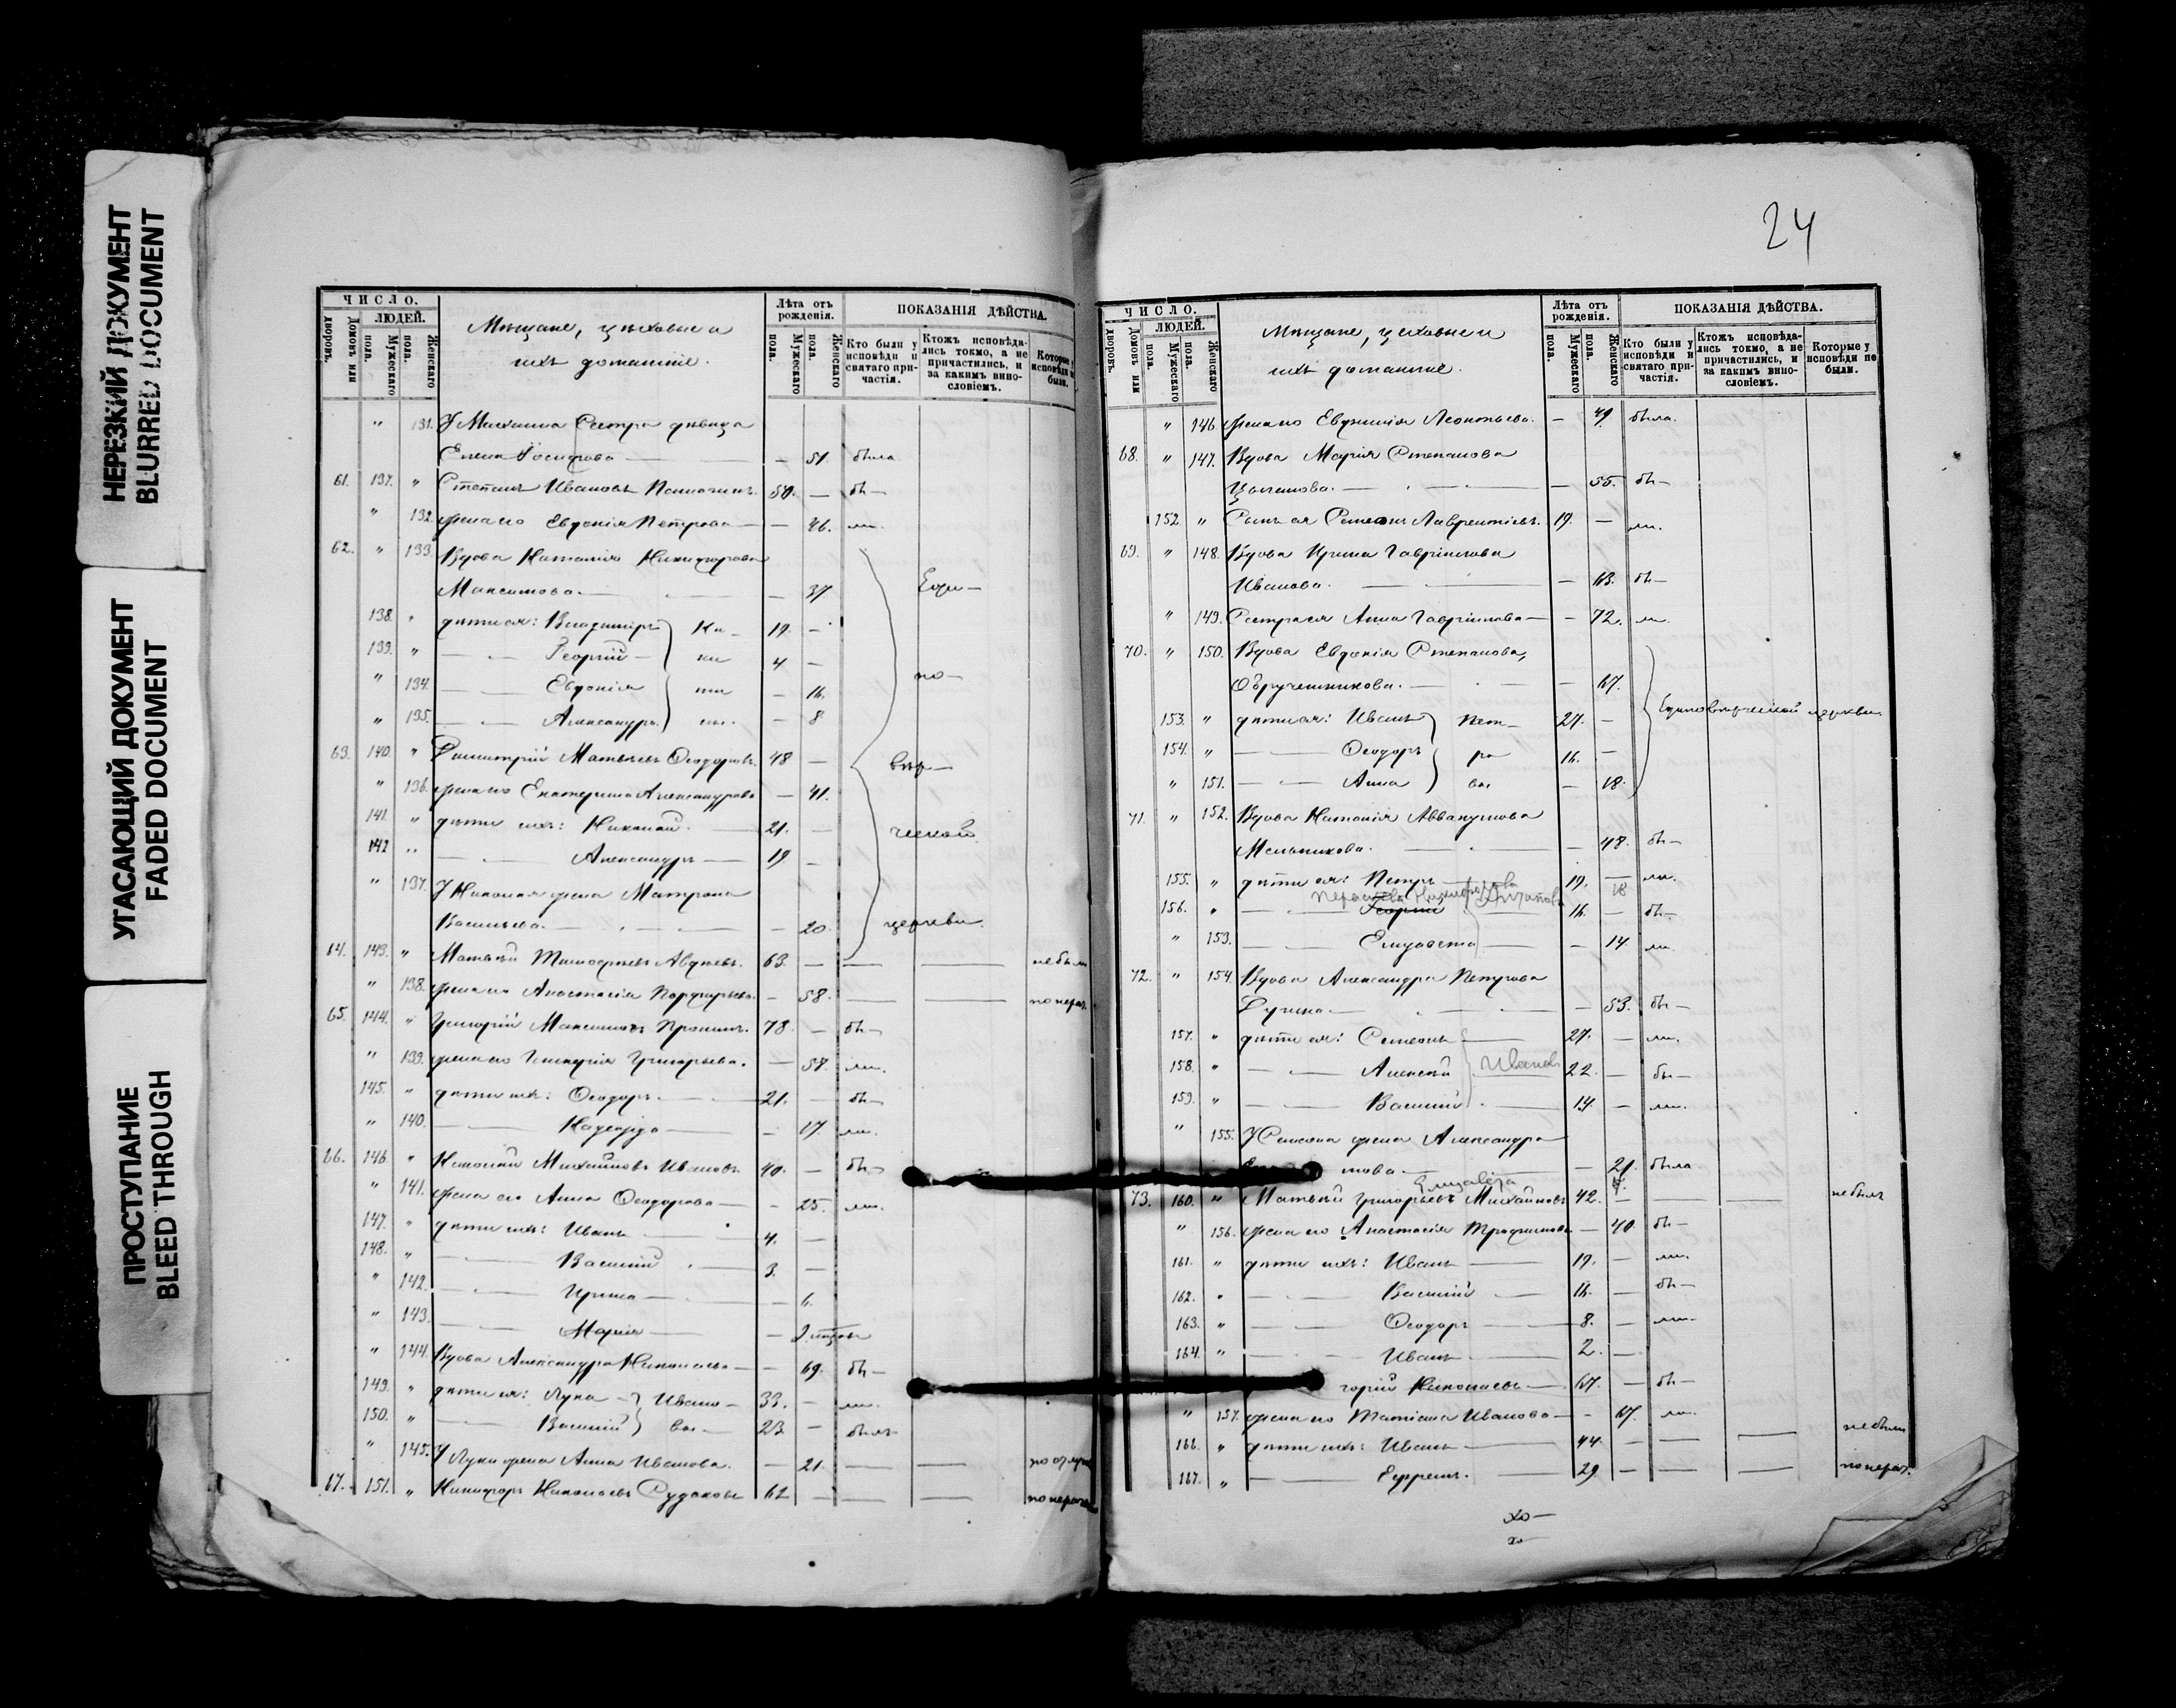 НЕРЕЗКИЙ ДОКУМЕНТ
BLURRED DOCUMENT
УГАСАЮЩИЙ ДОКУМЕНТ
FADED DOCUMENT
ПРОСТУПАНИЕ
BLEED THROUGH
ЧИСЛО.
Домовъ или дворовъ.
ЛЮДЕЙ.
Мужескаго пола.
Женскаго пола.
Мѣщане, цѣховые и
ихъ домашніе.
Лѣта отъ рожденія.
Мужескаго пола.
Женскаго пола.
ПОКАЗАНІЯ ДѢЙСТВА.
Кто были у исповѣди и святаго причастія.
Ктожъ исповѣдались токмо, а не причастились, и за какимъ винословіемъ.
Которые у исповѣди не были.
" 131. У Михаила Сестра дѣвица
Елена Іосифова — 51. была
61. 137. " Степанъ Ивановъ 50. — бы—
" 132. жена его Евдокія Петрова — 46. ли.
62. " 133. Вдова Наталія Никифорова
Максимова. — 37
138. " дѣти ея: Владиміръ Ни- 19. —
139. " — Георгій ки 4 —
" 134. — Евдокія — 16.
" 135. — Александра — 8
Едино—
вѣр—
ческой
церкви.
63. 140. " Димитрій Матвѣевъ Ѳеодоровъ. 48 —
" 136. жена его Екатерина Александрова — 41.
141. " дѣти ихъ: Николай. 21. —
142 " — Александръ — 19 —
" 137. У Николая жена Матрона
Васильева. — 20
64. 143. " Матвѣй Тимофеевъ Авдѣевъ. 63. — не были
" 138. жена его Анастасія Порфирьева. — 58. по нерад.
65. 144. " Григорій Максимовъ Пронинъ. 78. — бы—
" 139. жена его Гликерія Григорьева. — 57. ли.
145. " дѣти ихъ: Ѳеодоръ. 21. — бы—
" 140. — Надежда — 17. ли.
66. 146. " Николай Михайловъ Ивановъ 40. — бы—
" 141. жена его Анна Ѳеодорова — 25. ли.
147. " дѣти ихъ: Иванъ 4. —
148. " — Василій 3. —
" 142. — Ирина — 6.
" 143. — Марія —
" 144. Вдова Александра Николаева — 69. бы—
149. " дѣти ея: Лука Ивано— 33. — ли.
150. " — Василій вы— 23 — былъ
" 145. У Луки жена Анна Иванова. — 21.
67. 151. " Никифоръ Николаевъ Судаковъ 62 — по нерад.
24
ЧИСЛО.
Домовъ или дворовъ.
ЛЮДЕЙ.
Мужескаго пола.
Женскаго пола.
Мѣщане, цѣховые и
ихъ домашніе.
Лѣта отъ рожденія.
Мужескаго пола.
Женскаго пола.
ПОКАЗАНІЯ ДѢЙСТВА.
Кто были у исповѣди и святаго причастія.
Ктожъ исповѣдались токмо, а не причастились, и за какимъ винословіемъ.
Которые у исповѣди не были.
" 146 жена его Евдокія Леонтьева. — 49. была.
68. " 147. Вдова Марія Степанова
Цыганова. — 55. бы—
152 " Сынъ ея Симеонъ Лаврентіевъ. 19. — ли.
69. " 148. Вдова Ирина Гавріилова
Иванова. — 63. бы—
" 149. Сестра ея Анна Гавріилова — 72. ли.
70. " 150. Вдова Евдокія Степанова,
Обручешникова. — 67.
153. " дѣти ея: Иванъ Пет— 27. —
154. " — Ѳеодоръ ро 16. —
" 151. — Анна вы — 18.
Единовѣрческой церкви
71. " 152. Вдова Наталія Аввакумова
Мельникова. — 48. бы—
155. " дѣти ея: Петръ 19. — ли.
156. " — Георгій 16. — бы—
" 153. — Елизавета — 14. ли.
72. " 154 Вдова Александра Петрова
— 53. бы—
157. " дѣти ея: Симеонъ 27. — ли.
158. " — Алексѣй Ивановы 22. — бы—
159. " — Василій 14. — ли.
" 155. У Симеона жена Александра
— 21. была
Елизавета
73. 160. " Матвѣй Григорьевъ Михайловъ 42. — не былъ
" 156. жена его Анастасія Трофимова — 40. бы—
161. " дѣти ихъ: Иванъ 19. — ли.
162. " — Василій 16. — бы—
163. " — Ѳеодоръ 8. — ли.
164. " — Иванъ 2. —
горій Николаевъ 67. — бы—
" 157. жена его Татіана Иванова — 67. ли.
166. " дѣти ихъ: Иванъ 44. — не были
167. " — Ефремъ. 29 — по нерад.
хо—